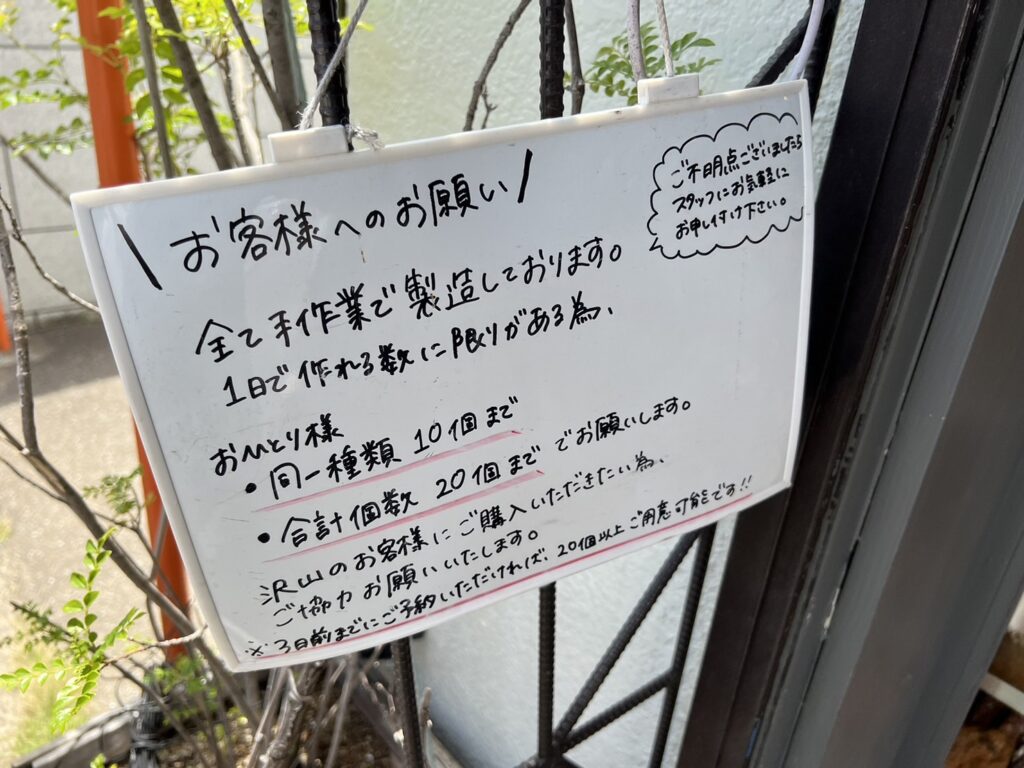 \ お客様へのお願い /
ご不明点ございましたら
スタッフにお気軽に
お申し付け下さい。
全て手作業で製造しております。
1日で作れる数に限りがある為、
おひとり様
・同一種類 10個まで
・合計個数 20個まで でお願いします。
沢山のお客様にご購入いただきたい為、
ご協力お願いいたします。
※3日前までにご予約いただければ、20個以上ご用意可能です!!